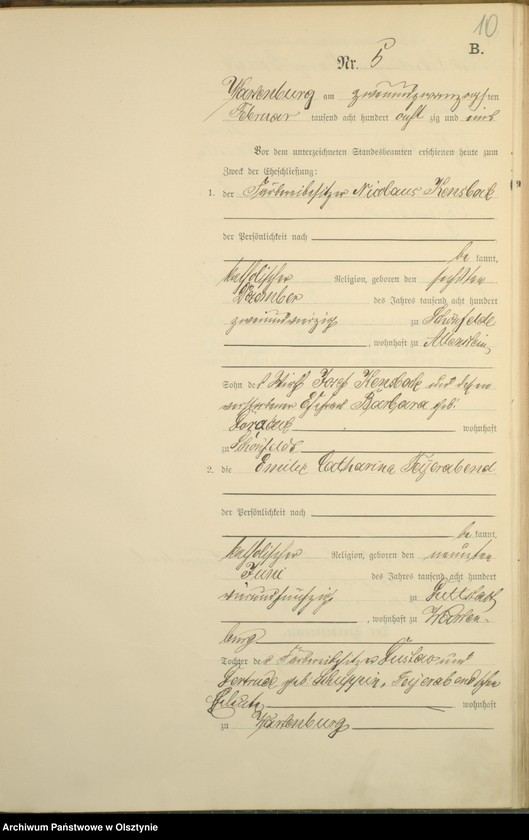 10
B.
Nr. 5
Wartenburg am zweiundzwanzigsten
Februar tausend acht hundert acht zig und eins
Vor dem unterzeichneten Standesbeamten erschienen heute zum
Zweck der Eheschließung:
1. der Färbereibesitzer Nicolaus
der Persönlichkeit nach
be kannt,
katholischer Religion, geboren den sechsten
Dezember des Jahres tausend acht hundert
zweiundvierzig zu Schönfelde
, wohnhaft zu Allenstein,
Sohn des Wirth Josef und dessen
verstorbener Ehefrau Barbara geb.
wohnhaft
zu Schönfelde
2. die Emilie Catharina Feyerabend
der Persönlichkeit nach
be kannt,
katholischer Religion, geboren den neunten
Juni des Jahres tausend acht hundert
vierundfünfzig zu Guttstadt
, wohnhaft zu Warten-
burg
Tochter des Färbereibesitzer Gustav und
Gertrude geb. Feyerabendschen
Eheleute wohnhaft
zu Wartenburg
Archiwum Państwowe w Olsztynie